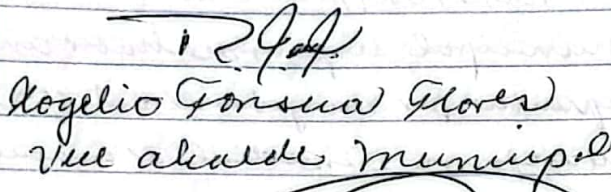 Rogelio Fonseca Flores
Vice alcalde municipal